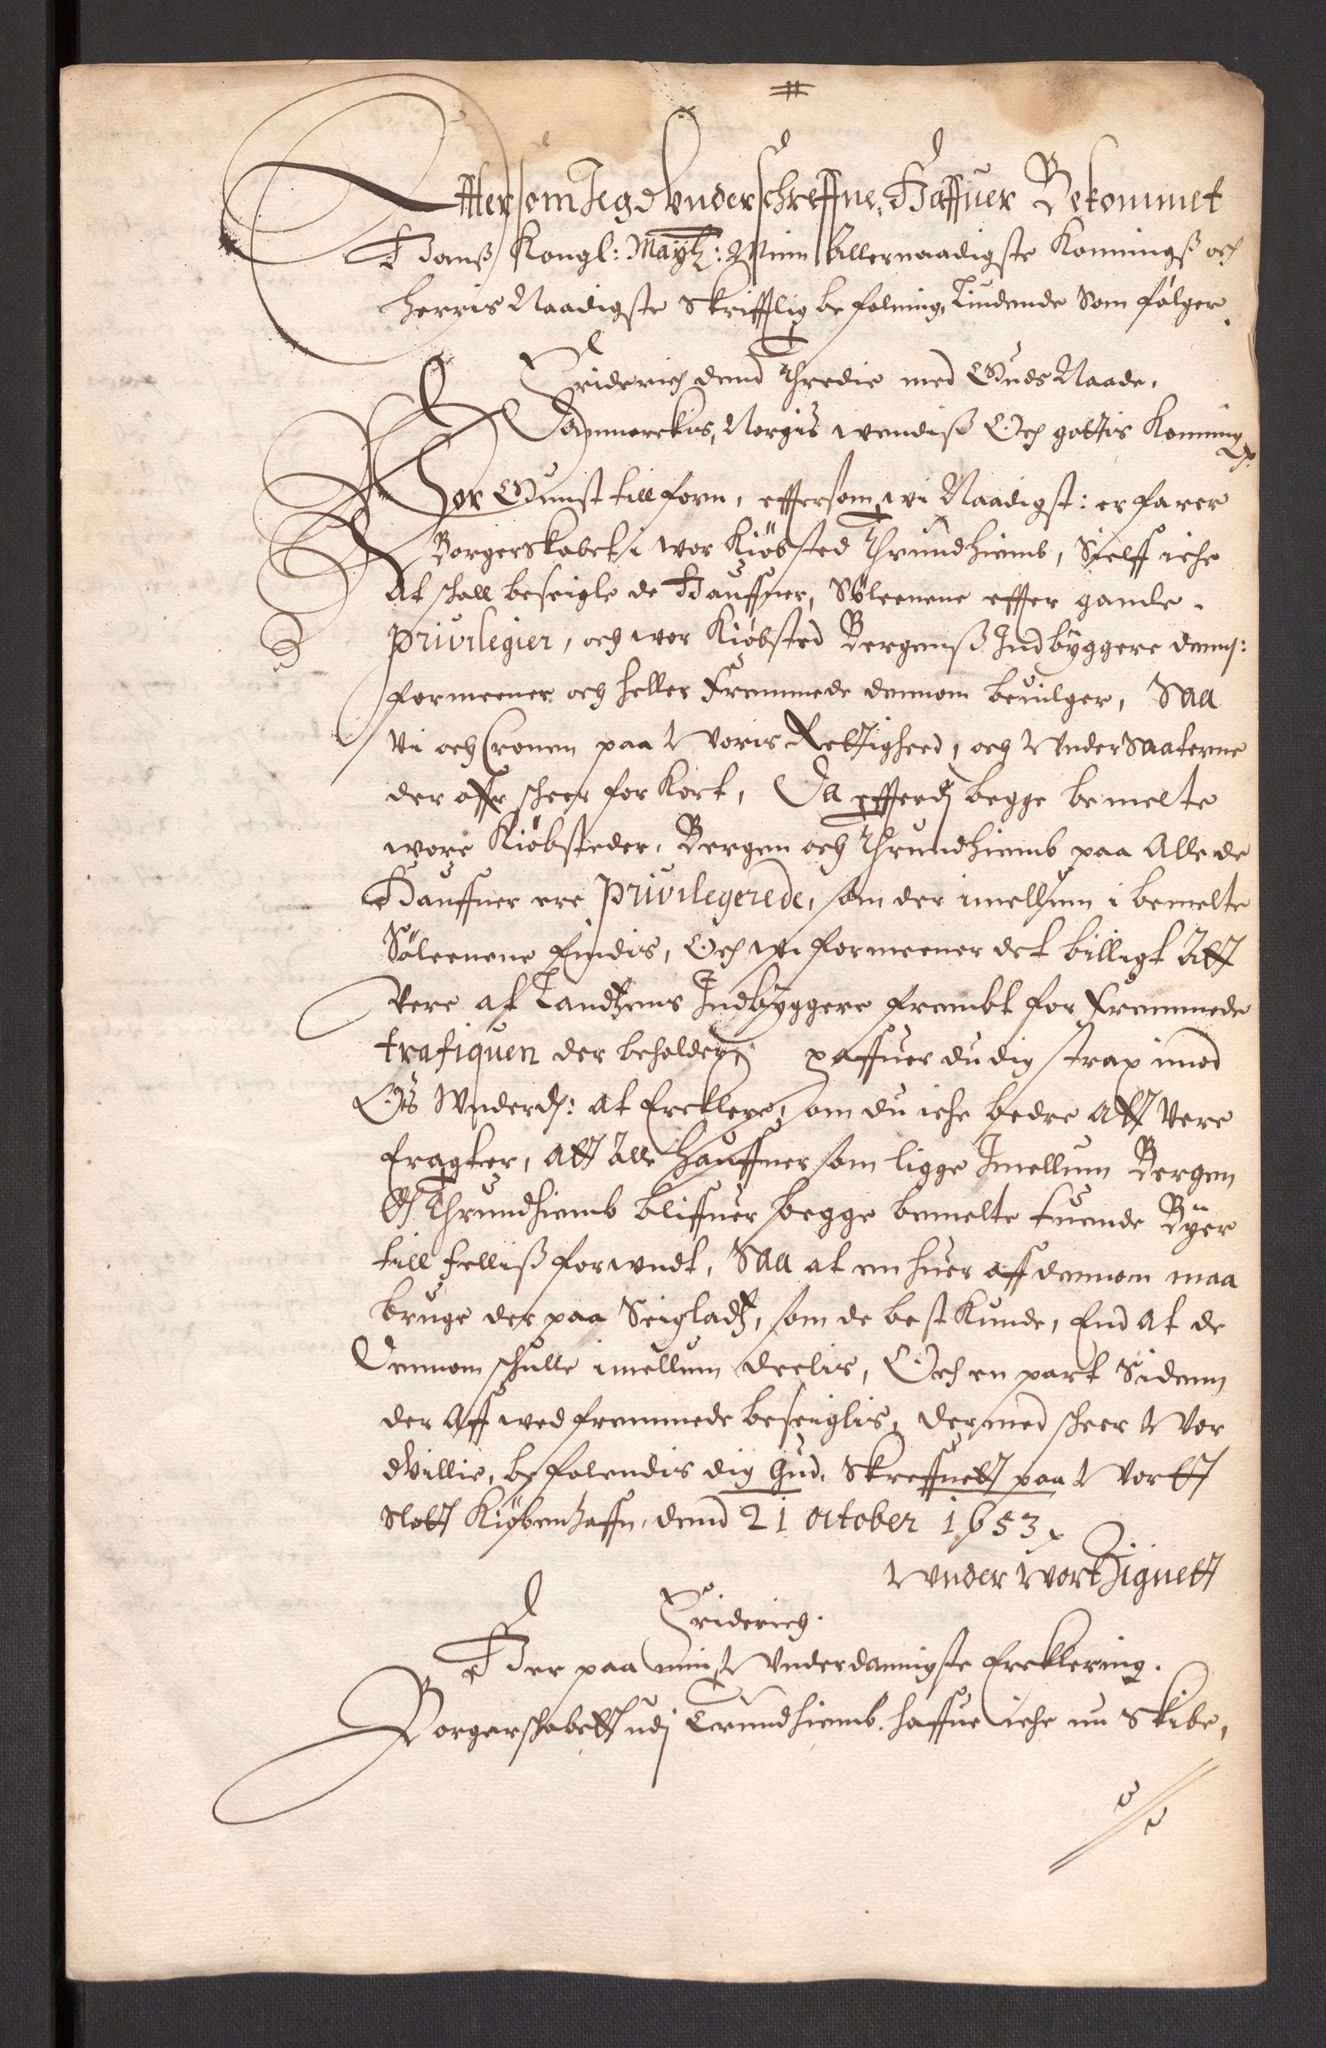 Effter som Jeg Vnderschreffne, Haffuer Bekommet
Hanß Kongl: Maytz: Minn Allernaadigste Konningß och
Herris Naadigste Skrifftlig befalning, Liudende Som følger.
Friderich dend Thredie med Guds Naade,
Danmarckis, Norgis wendiß Och gottis Konning
Vor Gunst tillforn, effter som wi Naadigst: erfarer
Borgerskabet i wor Kiøbsted Thrundhiemb, Sielff iche
At schall beseigle de Hauffner, Søleenene effter gamle
privilegier, och wor Kiøbsted Bergenß Indbyggere dennem:
formeener och heller Fremmede dennom beuilger, Saa
Vi och Cronen paa Woris Rettighed, och Wndersaaterne
der offr scheer for Kort, Da effterdj begge bemelte
wore Kiøbsteder, Bergen och Thrundhiemb paa Alle de
Hauffner ere privilegerede, som der imellum i bemelte
Søleenene Findis, Och wi formeener det billigt Att
Vere at Landzens Indbyggere frembt for Fremmede
trafiquen der beholder, haffuer du dig strax imod
Os Wnderd: at Ercklere, om du iche bedre Att Vere
Eragter, Att Alle Hauffner som ligge Jmellum Bergen
Oc Thrundhiemb bliffuer begge bemelte tuende Byer
till felliß forwndt, Saa at en huer aff dennom maa
bruge der paa Seigladz, som de best Kunde, End at de
Dennom schulle imellum deelis, Och en part Sidenn
der Aff wed fremmede beseiglis, der med scheer Wor
Villie, befalendis dig Gud, Skreffuett paa Wortt
Slott Kiøbenhaffn, dend 21 october 1653
Wnder Wort Zignett
Friderich.
Her paa min Wnderdannigste Ercklering.
Borgerschabett udj Trundhiemb haffue iche nu Skibe,